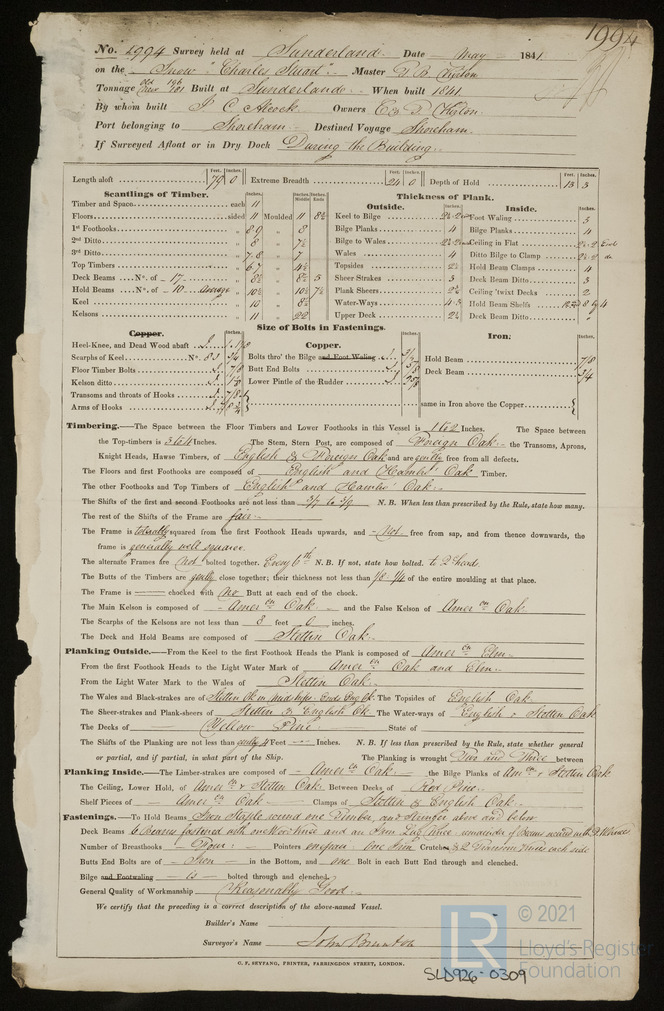 1994
No. 1994 Survey held at Sunderland Date May 1841
on the Snow "Charles Stuart" Master
Tonnage old 196 new 181 Built at Sunderland When built 1841
By whom built J C Alcock Owners
Port belonging to Shoreham Destined Voyage Shoreham
If Surveyed Afloat or in Dry Dock During the Building
Feet. Inches. Feet. Inches. Feet. Inches.
Length aloft 79 0 Extreme Breadth 24 0 Depth of Hold 13 3
Scantlings of Timber.
Timber and Space each 11
Floors sided 11 Moulded 11 8½
1st Foothooks " 8 9 " 8
2nd Ditto " 8 " 7½
3rd Ditto " 7 8 " 7
Top Timbers " 6 7 " 4½
Deck Beams No. of 17 " 8½ " 8½ 5
Hold Beams No. of 10 Average " 10½ " 10½ 7½
Keel " 10 " 8½
Kelsons " 11 " 22
Thickness of Plank.
Outside.
Keel to Bilge
Bilge Planks 4
Bilge to Wales
Wales 4
Topsides 2½
Sheer-Strakes 3
Plank Sheers 2½
Water-Ways
Upper Deck 2½
Inside.
Foot Waling 3
Bilge Planks 4
Ceiling in Flat
Ditto Bilge to Clamp
Hold Beam Clamps 4
Deck Beam Ditto 3
Ceiling 'twixt Decks 2
Hold Beam Shelfs
Deck Beam Ditto "
Size of Bolts in Fastenings.
Copper.
Heel-Knee, and Dead Wood abaft
Scarphs of Keel No. 8
Floor Timber Bolts
Kelson ditto
Transoms and throats of Hooks
Arms of Hooks
Copper.
Bolts thro' the Bilge and Foot Waling
Butt End Bolts
Lower Pintle of the Rudder
Iron.
Hold Beam 7/8
Deck Beam 3/4
same in Iron above the Copper
Timbering.—The Space between the Floor Timbers and Lower Foothooks in this Vessel is 1 & 2 Inches. The Space between
the Top-timbers is 3 & 4 Inches. The Stem, Stern Post, are composed of Foreign Oak the Transoms, Aprons,
Knight Heads, Hawse Timbers, of English & Foreign Oak and are genlly free from all defects.
The Floors and first Foothooks are composed of English and Hambro' Oak Timber.
The other Foothooks and Top Timbers of English and Hambro' Oak
The Shifts of the first and second Foothooks are not less than N. B. When less than prescribed by the Rule, state how many.
The rest of the Shifts of the Frame are fair
The Frame is tolerably squared from the first Foothook Heads upwards, and Not free from sap, and from thence downwards, the
frame is generally well square
The alternate Frames are not bolted together. Every 6th N. B. If not, state how bolted. to 2 heads
The Butts of the Timbers are genlly close together; their thickness not less than 1/3 - 1/4 of the entire moulding at that place.
The Frame is chocked with No Butt at each end of the chock.
The Main Kelson is composed of Amern Oak and the False Kelson of Amern Oak
The Scarphs of the Kelsons are not less than 3 feet 6 inches.
The Deck and Hold Beams are composed of Stettin Oak
Planking Outside.—From the Keel to the first Foothook Heads the Plank is composed of Amern Elm
From the first Foothook Heads to the Light Water Mark of Amern Oak and Elm
From the Light Water Mark to the Wales of Stettin Oak
The Wales and Black-strakes are of Stettin Ok in midships Ends Eng Ok The Topsides of English Oak
The Sheer-strakes and Plank-sheers of Stettin & English Ok The Water-ways of English & Stettin Oak
The Decks of Yellow Pine State of
The Shifts of the Planking are not less than genlly 4 Feet Inches. N. B. If less than prescribed by the Rule, state whether general
or partial, and if partial, in what part of the Ship. The Planking is wrought Two and Three between
Planking Inside.—The Limber-strakes are composed of Amern Oak the Bilge Planks of Amn & Stettin Oak
The Ceiling, Lower Hold, of Amern & Stettin Oak Between Decks of Red Pine
Shelf Pieces of Amern Oak Clamps of Stettin & English Oak
Fastenings.—To Hold Beams Iron Staple round one Timber, and Stringer above and below
Deck Beams 6 Beams fastened with one Wood knee and an Iron Lodg knee remainder of Beams secured with 2 W knees
Number of Breasthooks Four Pointers one pair one Iron Crutches & 2 Transom knees each side
Butts End Bolts are of Iron in the Bottom, and one Bolt in each Butt End through and clenched.
Bilge and Footwaling is bolted through and clenched.
General Quality of Workmanship Reasonably Good
We certify that the preceding is a correct description of the above-named Vessel.
Builder's Name
Surveyor's Name John Brunton
G. F. SEYFANG, PRINTER, FARRINGDON STREET, LONDON.
LR © 2021
Lloyd's Register
Foundation
SLD926-0309